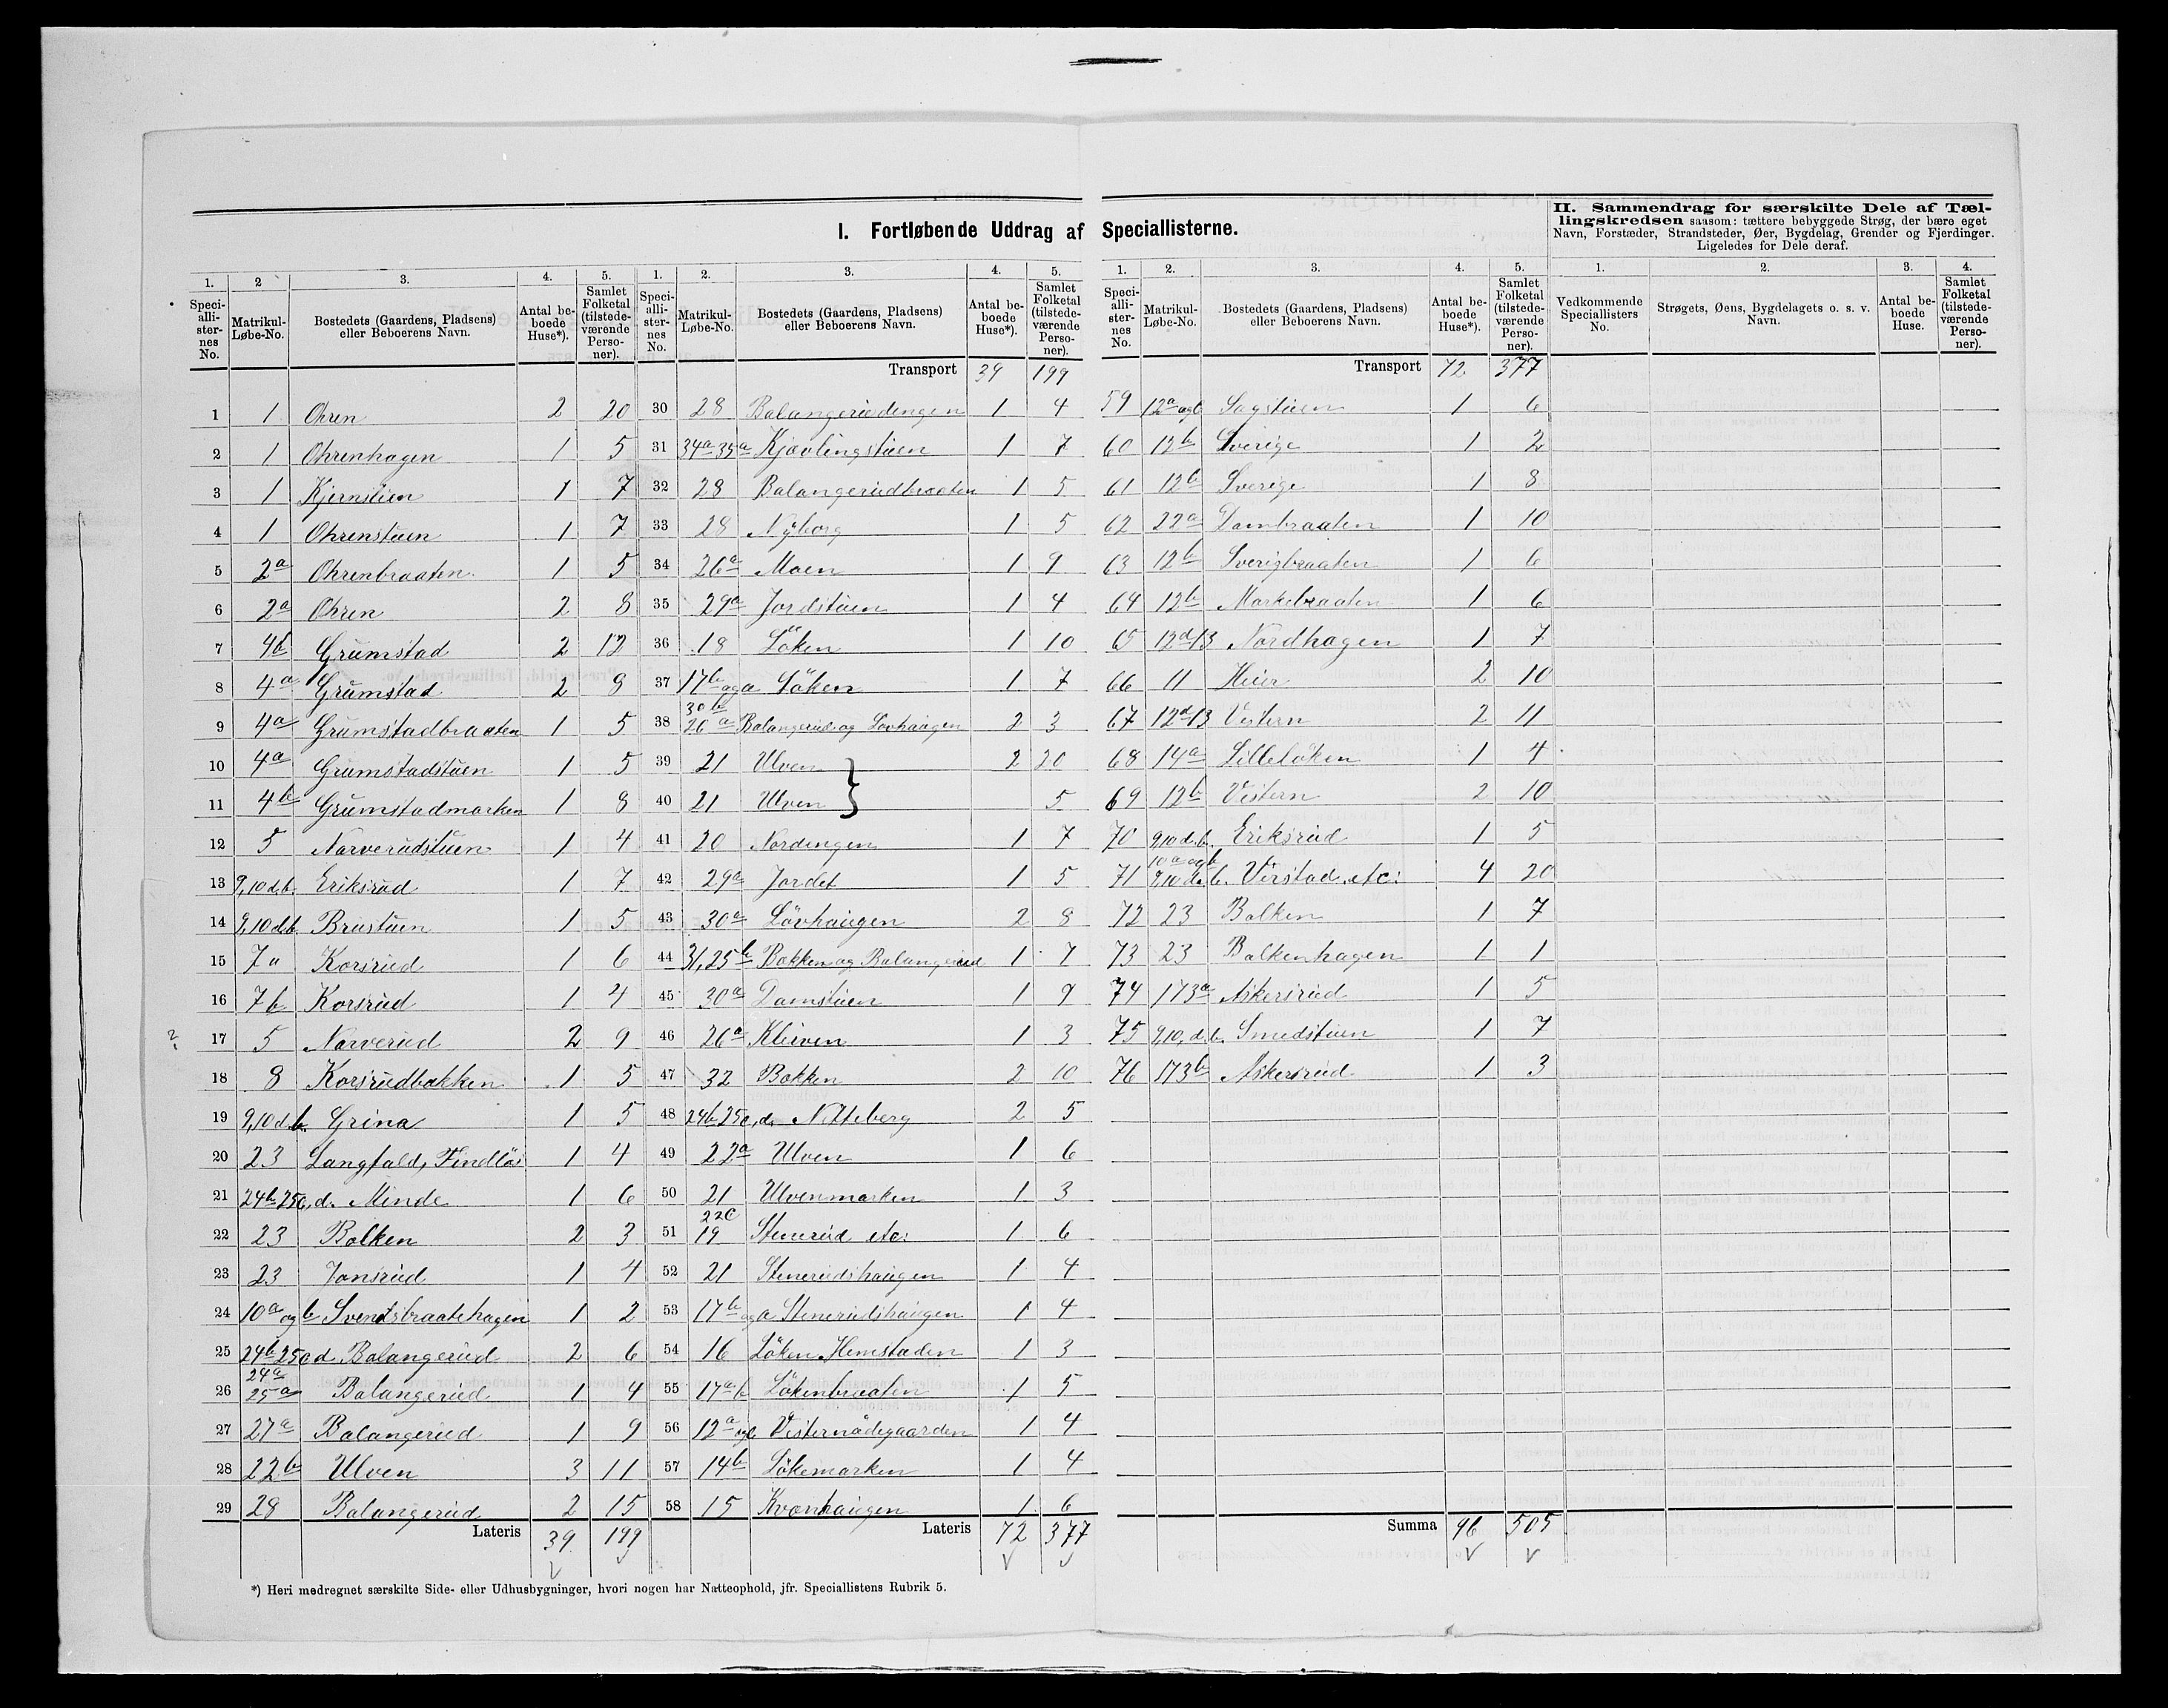 I. Fortløbende Uddrag af Speciallisterne.
II. Sammendrag for særskilte Dele af Tællingskredsen saasom: tættere bebyggede Strøg, der bære eget
Navn, Forstæder, Strandsteder, Øer, Bygdelag, Grender og Fjerdinger.
Ligeledes for Dele deraf.
1. 2 3. 4. 5.
Speciallisternes No. Matrikul-Løbe-No. Bostedets (Gaardens, Pladsens) eller Beboerens Navn. Antal beboede Huse*). Samlet Folketal (tilstedeværende Personer).
1 1 Ohren 2 20
2 1 Ohrenhagen 1 5
3 1 Kjernstien 1 7
4 1 Ohrenstuen 1 7
5 2a Ohrenbraaten 1 5
6 2a Ohren 2 8
7 4b Grumstad 2 12
8 4a Grumstad 2 9
9 4a Grumstadbraaten 1 5
10 4a Grumstadstuen 1 5
11 4b Grumstadmarken 1 8
12 5 Narverudstuen 1 4
13 9,10d.b. Eriksrud 1 7
14 9,10d.b. Brustuen 1 5
15 7a Korsrud 1 6
16 7b Korsrud 1 4
2. 17 5 Narverud 2 9
18 8 Korsrudbakken 1 5
19 9,10d.b. Grina 1 5
20 23 Langfald, Findlös 1 4
21 24b 25c,d. Minde 1 6
22 23 Balken 2 3
23 23 Jonsrud 1 4
24 10a og b Svendsbraatehagen 1 2
25 24b 25c d Balangerud 2 6
26 24a 25a Balangerud 1 4
27 27a Balangerud 1 9
28 22b Ulven 3 11
29 28 Balangerud 2 15
Lateris 39 199
1. 2. 3. 4. 5.
Speciallisternes No. Matrikul-Løbe-No. Bostedets (Gaardens, Pladsens) eller Beboerens Navn. Antal beboede Huse*). Samlet Folketal (tilstedeværende Personer).
Transport 39 199
30 28 Balangerudengen 1 4
31 34a 35a Kjævlingstuen 1 7
32 28 Balangerudbraaten 1 5
33 28 Nyborg 1 5
34 26a Moen 1 9
35 29a Jordstuen 1 4
36 18 Löken 1 10
37 17b og a Löken 1 7
38 30b 26a Balangerud og Lovhaugen 2 3
39 21 Ulven 2 20
40 21 Ulven 5
41 20 Nordengen 1 7
42 29a Jordet 1 5
43 30a Lövhaugen 2 8
44 31,25b Bakken og Balangerud 1 7
45 30a Damstuen 1 9
46 26a Kleiven 1 3
47 32 Bakken 2 10
48 24b 25c,d. Nitteberg 2 5
49 22a Ulven 1 6
50 21 Ulvenmarken 1 3
51 22c 19 Stenerud etc: 1 6
52 21 Stenerudshaugen 1 4
53 17b og a Stenerudshaugen 1 4
54 16 Löken Hemstaden 1 3
55 17a b Lökenbraaten 1 5
56 12a og c Vesternödegaarden 1 4
57 14b Lökemarken 1 4
58 15 Kvænhaugen 1 6
Lateris 72 377
1. 2. 3. 4. 5.
Speciallisternes No. Matrikul-Løbe-No. Bostedets (Gaardens, Pladsens) eller Beboerens Navn. Antal beboede Huse*). Samlet Folketal (tilstedeværende Personer).
Transport 72 377
59 12a og c Sagstuen 1 6
60 12b Sverige 1 2
61 12b Sverige 1 8
62 22a Dambraaten 1 10
63 12b Sverigbraaten 1 6
64 12b Markebraaten 1 6
65 12d 13 Nordhagen 1 7
66 11 Heier 2 10
67 12d 13 Vestern 2 11
68 14a Lilleløken 1 4
69 12b Vestern 2 10
70 9,10d.b. Eriksrud 1 5
71 10a og b 9,10d.b. Verstad etc: 4 20
72 23 Balken 1 7
73 23 Balkenhagen 1 1
74 173a Askersrud 1 5
75 9,10,d.b. Smedstuen 1 7
76 173b Askersrud 1 3
Summa 96 505
1. 2. 3. 4.
Vedkommende Speciallisters No. Strøgets, Øens, Bygdelagets o. s. v. Navn. Antal beboede Huse. Samlet Folketal (tilstedeværende Personer).
*) Heri medregnet særskilte Side- eller Udhusbygninger, hvori nogen har Natteophold, jfr. Speciallistens Rubrik 5.